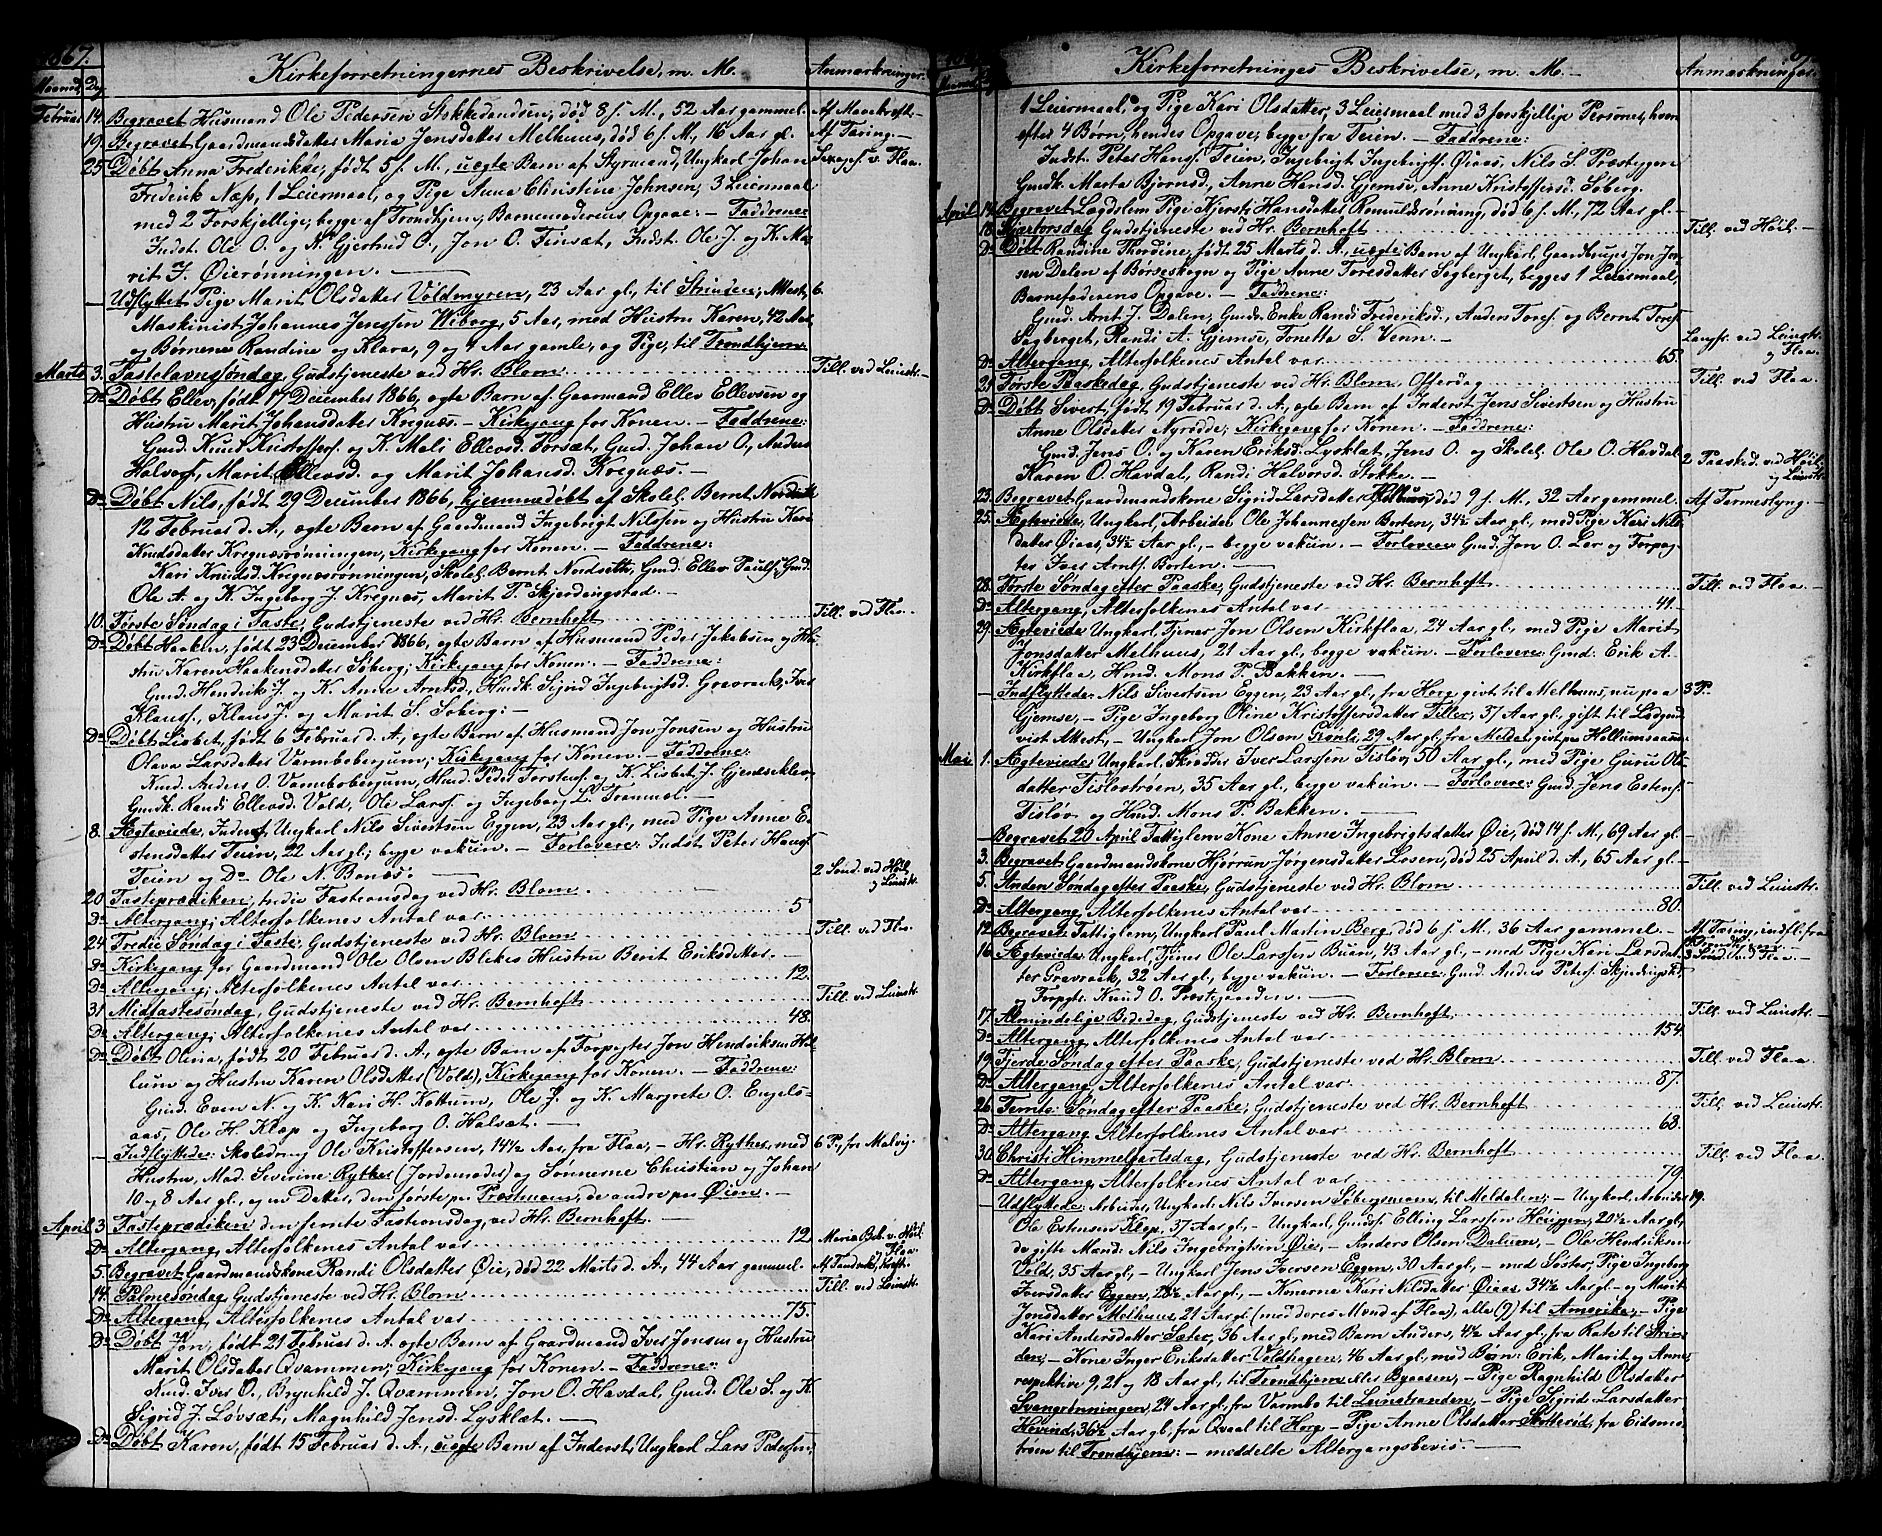 1867.
Kirkeforretningernes Beskrivelse, m. M.
Anmærkninger.
Maaned. Dg.
Februar 14. Begravet Husmand Ole Pedersen Stokkedandsen, død 8 f. M., 52 Aar gammel. Af Maaekraft.
19. Begravet Gaardmandsdatter Maria Jensdatter Melhuus, død 6 f. M., 16 Aar gl. Af Tæring.
25. Døbt Anna Frederikke, født 5 f. M., uægte Barn af Styrmand, Ungkarl Johan v. Flaa.
Fredrik Næss, 1 Leiermaal, og Pige Anna Christine Johnsen, 3 Leiermaal
med 2 Forskjellige, begge af Trondhjem, Barnemoderens Opgave: – Faddrene
Indst. Ole O. og K. Gjertrud O., Jon O. Finsæt, Indst. Ole J. og K. Ma-
rit J. Øierønningen.
– Udflyttet Pige Marit Olsdatter Voldmyren, 23 Aar gl., til Strinden; Attest, 6.
Maskinist Johannes Jenssen Wiborg, 5 Aar, med Hustru Karen, 42 Aar
og Børnene Randine og Klara, 9 og 1 Aar gamle, og Pige, til Trondhjem
Marts 3. Fastelavnssøndag, Gudstjeneste ved Hr. Blom. Till. ved Leinstr.
Do Døbt Ellev, født 17 December 1866, ægte Barn af Gaarmand Ellev Ellevsen og
Hustru Marit Johansdatter Kregnæs. – Kirkegang for Konen. – Faddrene:
Gmd. Knud Kristoffers. og K. Mali Ellevsd. Forsæt, Gmd. Johan O., Anders
Halvors., Marit Ellevsd. og Marit Johansd. Kregnæs. –
Do Døbt Nils, født 29 December 1866, hjemmedøbt af Skolel. Bernt Nordsetth
12 Februar d. A., ægte Barn af Gaardmand Ingebrigt Nilssen og Hustru Kari
Knudsdatter Kregnæsrønningen, Kirkegang for Konen. – Faddrene:
Kari Knudsd. Kregnæsrønningen, Skolel. Bernt Nordseth, Gmd. Ellev Pauls., Gmd.
Ole A. og K. Ingeborg J. Kregnæs, Marit P. Skjerdingstad. –
10. Første Søndag i Faste, Gudstjeneste ved Hr. Bernhoft Till. ved Flaa.
Do Døbt Haaken, født 23 December 1866, ægte Barn af Husmand Peder Jakobsen og Hu-
stru Karen Haakensdatter Søberg; Kirkegang for Konen. – Faddrene:
Gmd. Hendrik J. og K. Anne Arntsd., Husdk. Sigrid Ingebrigtsd. Gravraak, Iver
Klauss., Klaus J. og Marit S. Søberg: –
Do Døbt Lisbet, født 6 Februar d. A., ægte Barn af Husmand Jon Jonsen og Hustru
Olava Larsdatter Varmbobergum; Kirkegang for Konen. – Faddrene:
Hmd. Anders O. Varmbobergum, Hmd. Peder Torstens. og K. Lisbet J. Gjemseklev,
Gmdk. Randi Ellevsd. Vold, Ole Lars. og Ingeborg L. Trammel. –
8. Ægteviede, Inderst, Ungkarl Nils Sivertsen Eggen, 23 Aar gl., med Pige Anne E-
stensdatter Teien, 22 Aar gl., begge vakcin. – Forlovere: Indst Peter Hans.
Teien og Do Ole N. Bonæs. – 2 Sønd. ved Høil. og Leinstr.
20. Fasteprædiken, tredie Fasteonsdag ved Hr. Blom
Do Altergang; Alterfolkenes Antal var 5
24. Tredie Søndag i Faste, Gudstjeneste ved Hr. Blom Till. ved Flaa.
Do Kirkegang for Gaardmand Ole Olsen Blekes Hustru Berit Eriksdatter. –
Do Altergang; Alterfolkenes Antal var 12.
31. Midfastesøndag, Gudstjeneste ved Hr. Bernhoft Till. ved Leinstr.
Do Altergang; Alterfolkenes Antal var 48.
Do Døbt Olina, født 20 Februar d. A., ægte Barn af Forpagter Jon Hendriksen Hol-
lum og Hustru Karen Olsdatter (Vold), Kirkegang for Konen. – Faddrene:
Gmd. Even N. og K. Kari H. Kattum, Ole J. og K. Margrete O. Engels-
aas, Ole H. Klæp og Ingeborg O. Halsæt. –
– Indflyttede: Skoledreng Ole Kristoffersen, 14½ Aar, fra Flaa, – Hr. Rythe, med 6 P., fra Malvig.
Hustru, Mad. Severine Rythe (Jordemoder) og Sønnerne Christian og Johan
10 og 8 Aar gl., og en Datter, den første paa Præstmoen, de andre paa Øien. –
April 3. Fasteprædiken den femte Fasteonsdag, ved Hr. Bernhoft. Maria Beb. v. Høil.
Do Altergang, Alterfolkenes Antal var 12 Flaa
5. Begravet Gaardmandskone Randi Olsdatter Øie, død 22 Marts d. A., 44 Aar gammel.
14. Palmesøndag Gudstjeneste ved Hr. Blom Till. ved Leinstr.
Do Altergang, Alterfolkenes Antal var 75.
Do Døbt Jon, født 21 Februar d. A., ægte Barn af Gaardmand Iver Jonsen og Hustru
Marit Olsdatter Qvammen; Kirkegang for Konen. – Faddrene:
Hmd. Iver O., Brynhild J. Qvammen, Jon O. Havdal, Gmd. Ole S. og K.
Sigrid J. Løvsæt, Magnhild Jensd. Lysklæt. –
Do Døbt Karen, født 15 Februar d. A., uægte Barn af Inderst, Ungkarl Lars Pedersen,
Kirkeforretninges Beskrivelse, m. M.
Anmærkninger.
1 Leiermaal, og Pige Kari Olsdatter, 3 Leiermaal med 3 forskjellige Personer, hvor
efter 4 Børn, hendes Opgave; begge fra Teien. – Faddrene:
Indst. Peter Hans. Teien, Ingebrigt Ingebrigts. Øiaas, Nils S. Præstyggen
Gmdk. Marta Bjørnsd., Anne Hansd. Gjemse, Anne Kristoffersd. Søberg.
April 14. Begravet Lægdslem Pige Kjersti Hansdatter Romulsrønning, død 6 f. M., 72 Aar gl.
18. Skjærtorsdag Gudstjeneste ved Hr. Bernhoft Till. ved Høil.
Do Døbt Randine Thordine, født 25 Marts d. A., uægte Barn af Ungkarl, Gaardmans. Jon Jon-
sen Dalen af Børseskogn og Pige Anne Toresdatter Sagberget, begges 1 Leiermaal,
Barnefaderens Opgave. – Faddrene:
Gmd. Arnt J. Dalen, Gmds. Enke Randi Frederiksd., Anders Tores. og Bernt Tores.
Sagberget, Randi A. Gjemse, Tonetta S. Venn. – Langfr. ved Leinstr.
Do Altergang, Alterfolkenes Antal var 65. og Flaa.
21. Første Paaskedag Gudstjeneste ved Hr. Blom, Offerdag Till. ved Flaa.
Do Døbt Sivert, født 19 Februar d. A., ægte Barn af Inderst Jens Sivertsen og Hustru
Anne Olsdatter Nyrødde; Kirkegang for Konen. – Faddrene:
Gmd. Jens O. og Karen Eriksd. Lysklæt, Jens O. og Skolel. Ole O. Havdal,
Karen O. Havdal, Randi Halvorsd. Stokke. – 2 Paaskd. ved Høil. og Leinstr.
23. Begravet Gaardmandskone Sigrid Larsdatter Hollum, død 9 f. M., 32 Aar gammel. Af Tarmeslyng.
25. Ægteviede, Ungkarl, Arbeider Ole Johannessen Borten, 34½ Aar gl., med Pige Kari Nils-
datter Øiaas, 34½ Aar gl., – begge vakcin. – Forlovere: Gmd. Jon O. Ler og Forpag-
ter Iver Arnts. Borten. –
28. Første Søndag efter Paaske, Gudstjeneste ved Hr. Bernhoft Till. ved Flaa.
Do Altergang, Alterfolkenes Antal var 41.
29. Ægteviede Ungkarl, Tjener Jon Olsen Kirkflaa, 24 Aar gl., med Pige Marit
Jonsdatter Melhuus, 21 Aar gl., begge vakcin. – Forlovere: Gmd. Erik A.
Kirkflaa, Hmd. Mons P. Bakken. –
– Indflyttede: Nils Sivertsen Eggen, 23 Aar gl., fra Horg givt til Melhuus, nu paa 3 P.
Gjemse, – Pige Ingeborg Oline Kristoffersdatter Tiller, 37 Aar gl., gift til Ladgend.
vist Attest, – Ungkarl Jon Olsen Grønli, 29 Aar gl., fra Meldal, gift paa Hollumsaunn.
Mai 1. Ægteviede Ungkarl, Skrædder Iver Larssen Tisløv, 50 Aar gl., med Pige Guru Ols-
datter Tisløstrøen, 35 Aar gl., begge vakcin. – Forlovere: Gmd. Jens Estens.
Tisløv og Hmd. Mons P. Bakken. –
– Begravet 20 April Fattiglem Kone Anne Ingebrigtsdatter Øie, død 14 f. M., 69 Aar gl.
3. Begravet Gaardmandskone Hjerrun Jørgensdatter Losen, død 25 April d. A., 65 Aar gl.
5. Anden Søndag efter Paaske, Gudstjeneste ved Hr. Blom Till. ved Leinstr.
Do Altergang, Alterfolkenes Antal var 80.
12. Begravet Fattiglem, Ungkarl Paul Martin Berg, død 6 f. M. 36 Aar gammel. Af Tæring, indfl. fra Trondhjem.
16. Ægteviede Ungkarl, Tjener Ole Larssen Buan, 43 Aar gl., – med Pige Kari Larsdat- 3 Sønd. ved Flaa.
ter Gravraak, 32 Aar gl., begge vakcin. – Forlovere: Gmd. Anders Peters. Skjerdingstad
og Forpgtr. Knud O. Præstegaarden. –
17. Almindelige Bededag, Gudstjeneste ved Hr. Bernhoft. Till. ved Leinstr.
Do Altergang, Alterfolkenes Antal var 154.
19. Fjerde Søndag efter Paaske, Gudstjeneste ved Hr. Blom Till. ved Flaa
Do Altergang, Alterfolkenes Antal var 87.
26. Femte Søndag efter Paaske, Gudstjeneste ved Hr. Bernhoft Till. ved Leinstr.
Do Altergang Alterfolkenes Antal var 68.
30. Christi Himmelfartsdag, Gudstjeneste ved Hr. Bernhoft Till. ved Flaa.
Do Altergang Alterfolkenes Antal var 79.
– Udflyttede: Arbeider, Ungkarl Nils Iversen Søbergsmoen, til Meldalen; – Ungkarl Arbeider 19.
Ole Estensen Klæp, 37 Aar gl., – Ungkarl, Gmds. Elling Larssen Hougen, 20½ Aar gl.,
de gifte Mænd: Nils Ingebrigtsen Øie, – Anders Olsen Dalum, – Ole Hendriksen
Vold, 35 Aar gl., – Ungkarl Jens Iversen Eggen, 30 Aar gl., – med Søster, Pige Ingeborg
Iversdatter Eggen, 28½ Aar gl., – Konerne Kari Nilsdatter Øiaas 34½ Aar gl. og Marit
Jonsdatter Melhuus, 21 Aar gl. (med deres Mænd af Flaa), alle (9) til Amerika; – Pige
Kari Andersdatter Sæter, 36 Aar gl., med Barn Anders, 4½ Aar gl., fra Rate til Strin-
den; – Kone Inger Eriksdatter Voldhagen, 46 Aar gl., med Børn: Erik, Marit og Anne,
respektive 9, 21 og 18 Aar gl., til Trondhjem eller Byaasen, – Pige Ragnhild Olsdatter
Svangrønningen, 24 Aar gl., fra Varmbo til Leinstranden, – Pige Sigrid Larsdatter
Hovind, 36½ Aar gl., fra Qvaal til Horg – Pige Anne Olsdatter Slotterød, fra Eidsmo-
trøen til Trondhjem: – meddelte Altergangsbevis. –